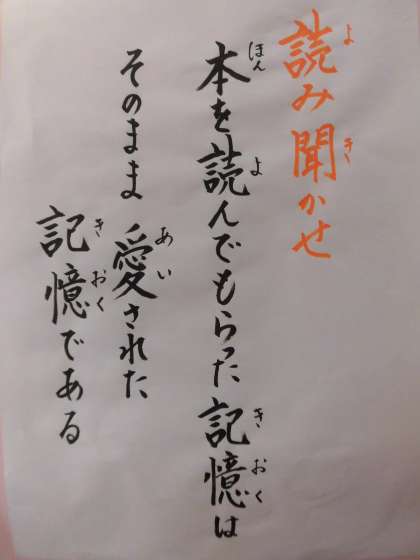 読み聞かせ
本を読んでもらった記憶は
そのまま愛された
記憶である